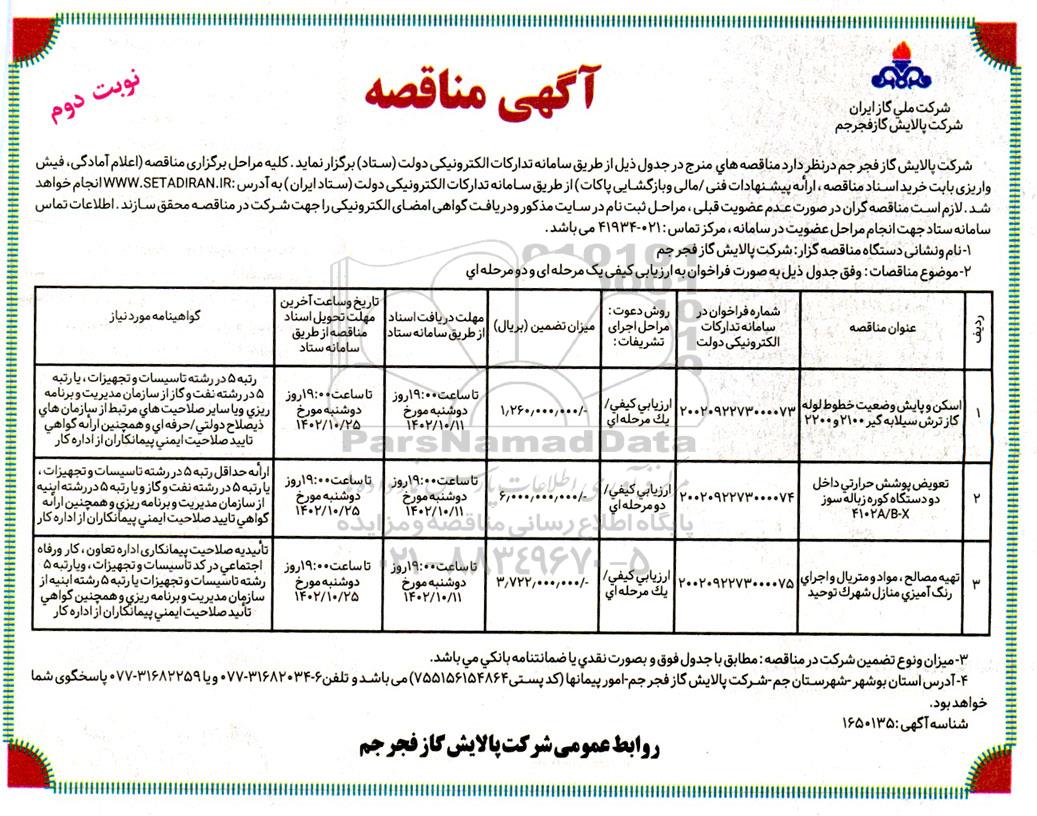 شرکت ملي گاز ایران
شرکت پالایش گاز فجر جم
آگهی مناقصه
نوبت دوم
شرکت پالایش گاز فجر جم درنظر دارد مناقصه هاي مندرج در جدول ذیل از طریق سامانه تدارکات الکترونیکی دولت (ستاد) برگزار نماید . کلیه مراحل برگزاری مناقصه (اعلام آمادگی، فیش
واریزی بابت خرید اسناد مناقصه ، ارأئه پیشنهادات فنی /مالی وبازگشایی پاکات) از طریق سامانه تدارکات الکترونیکی دولت (ستاد ایران) به آدرس :WWW.SETADIRAN.IR انجام خواهد
شد . لازم است مناقصه گران در صورت عدم عضویت قبلی ، مراحل ثبت نام در سایت مذکور ودریافت گواهی امضای الکترونیکی را جهت شرکت در مناقصه محقق سازند . اطلاعات تماس
سامانه ستاد جهت انجام مراحل عضویت در سامانه ، مرکز تماس : ۰۲۱-۴۱۹۳۴ می باشد .
۱-نام ونشانی دستگاه مناقصه گزار: شرکت پالایش گاز فجر جم
۲-موضوع مناقصات : وفق جدول ذیل به صورت فراخوان به ارزیابی کیفی یک مرحله ای و دو مرحله ای
ردیف
عنوان مناقصه
شماره فراخوان در
سامانه تدارکات
الکترونیکی دولت
روش دعوت:
مراحل اجرای
تشریفات:
میزان تضمین (بریال)
مهلت دریافت اسناد
از طریق سامانه ستاد
تاریخ وساعت آخرین
مهلت تحویل اسناد
مناقصه از طریق
سامانه ستاد
گواهینامه مورد نیاز
۱
اسکن و پایش وضعیت خطوط لوله
گاز ترش سیلابه گیر ۲۱۰۰ و ۲۲۰۰
۲۰۰۲۰۹۲۲۷۳۰۰۰۰۷۳
ارزیابي کیفي/
یك مرحله اي
۱,۲۶۰,۰۰۰,۰۰۰/-
تا ساعت ۱۹:۰۰روز
دوشنبه مورخ
۱۴۰۲/۱۰/۱۱
تا ساعت ۱۹:۰۰روز
دوشنبه مورخ
۱۴۰۲/۱۰/۲۵
رتبه ۵ در رشته تاسیسات و تجهیزات ، یا رتبه
۵ در رشته نفت و گاز از سازمان مدیریت و برنامه
ریزي ویا سایر صلاحیت هاي مرتبط از سازمان هاي
ذیصلاح دولتي/حرفه اي و همچنین ارائه گواهي
تایید صلاحیت ایمني پیمانکاران از اداره کار
۲
تعویض پوشش حرارتي داخل
دو دستگاه کوره زباله سوز
۴۱۰۲A/B-X
۲۰۰۲۰۹۲۲۷۳۰۰۰۰۷۴
ارزیابي کیفي/
دو مرحله اي
۶,۰۰۰,۰۰۰,۰۰۰/-
تا ساعت ۱۹:۰۰روز
دوشنبه مورخ
۱۴۰۲/۱۰/۱۱
تا ساعت ۱۹:۰۰روز
دوشنبه مورخ
۱۴۰۲/۱۰/۲۵
ارأئه حداقل رتبه ۵ در رشته تاسیسات و تجهیزات ،
یا رتبه ۵ در رشته نفت و گاز و یا رتبه ۵ در رشته ابنیه
از سازمان مدیریت و برنامه ریزي و همچنین ارأئه
گواهي تایید صلاحیت ایمني پیمانکاران از اداره کار
۳
تهیه مصالح ، مواد و متریال و اجراي
رنگ آمیزي منازل شهرك توحید
۲۰۰۲۰۹۲۲۷۳۰۰۰۰۷۵
ارزیابي کیفي/
یك مرحله اي
۳,۷۲۲,۰۰۰,۰۰۰/-
تا ساعت ۱۹:۰۰روز
دوشنبه مورخ
۱۴۰۲/۱۰/۱۱
تا ساعت ۱۹:۰۰روز
دوشنبه مورخ
۱۴۰۲/۱۰/۲۵
تأئیدیه صلاحیت پیمانکاری اداره تعاون ، کار ورفاه
اجتماعي در کد تأسیسات و تجهیزات ، ویا رتبه ۵
رشته تاسیسات و تجهیزات یا رتبه ۵ رشته ابنیه از
سازمان مدیریت و برنامه ریزي و همچنین گواهي
تأئید صلاحیت ایمني پیمانکاران از اداره کار
ParsNamadData
پایگاه اطلاع رسانی مناقصه و مزایده
۰۲۱-۸۸۳۴۹۶۷۰-۵
۳-میزان ونوع تضمین شرکت در مناقصه : مطابق با جدول فوق و بصورت نقدي یا ضمانتنامه بانکي مي باشد.
۴-آدرس استان بوشهر-شهرستان جم-شرکت پالایش گاز فجر جم-امور پیمانها (کد پستی ۷۵۵۱۵۶۱۵۴۸۶۴) مي باشد و تلفن ۶-۰۷۷-۳۱۶۸۲۰۳۴ و یا ۰۷۷-۳۱۶۸۲۲۵۹ پاسخگوی شما
خواهد بود.
شناسه آگهی : ۱۶۵۰۱۳۵
روابط عمومی شرکت پالایش گاز فجر جم